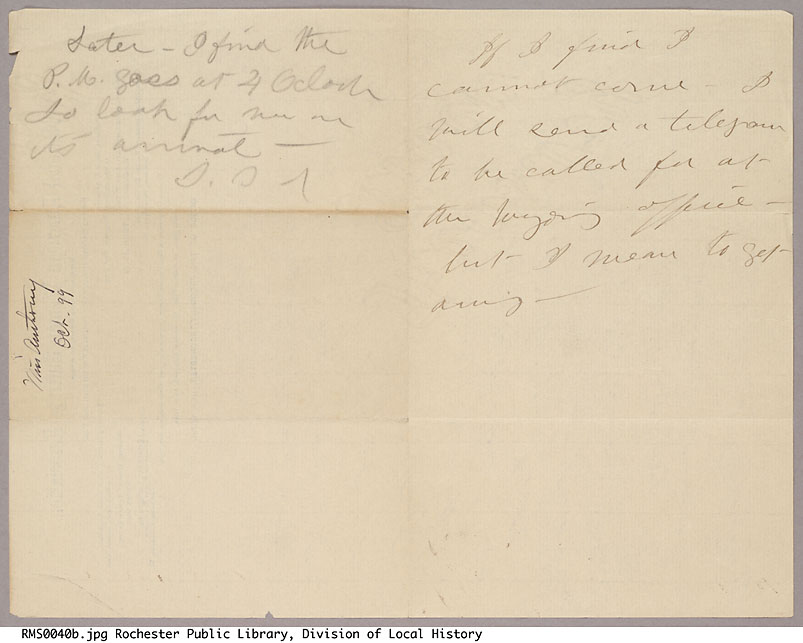 Later – I find the
P.M. goes at 4 Oclock
So look for me on
its arrival –
S. B. A
Miss Anthony
Oct. 99
If I find I
cannot come – I
will send a telegram
to be called for at
the office –
but I mean to get
away –
RMS0040b.jpg Rochester Public Library, Division of Local History